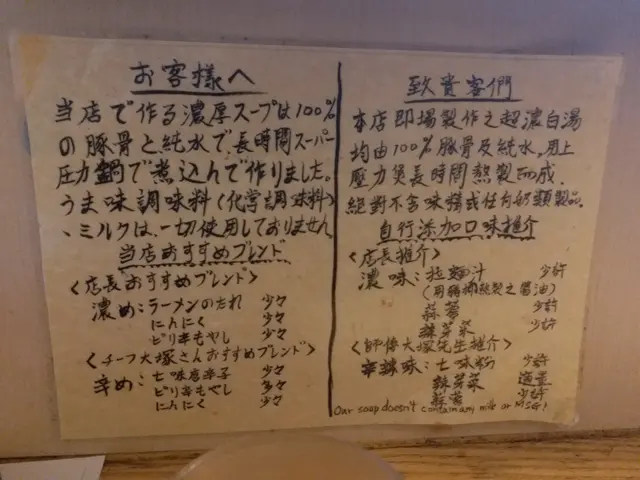 お客様へ
当店で作る濃厚スープは100%
の豚骨と純水で長時間スーパー
圧力鍋で煮込んで作りました。
うま味調味料(化学調味料)
、ミルクは一切使用しておりません
当店おすすめブレンド
<店長おすすめブレンド>
濃め:ラーメンのたれ 少々
にんにく 少々
ピリ辛もやし 少々
<チーフ大塚さんおすすめブレンド>
辛め:七味唐辛子 少々
ピリ辛もやし 多々
にんにく 少々
致貴客們
本店即場製作之超濃白湯
均由100%豚骨及純水,用上
壓力煲長時間熬製而成.
絕對不含味精或任何奶類製品.
自行添加口味推介
<店長推介>
濃味:拉麵汁 少許
(用豬柳熬製之醤油)
蒜蓉 少許
辣芽菜 少許
<師傅大塚先生推介>
辛辣味:七味粉 少許
辣芽菜 適量
蒜蓉 少許
Our soap doesn't contain any milk or MSG!